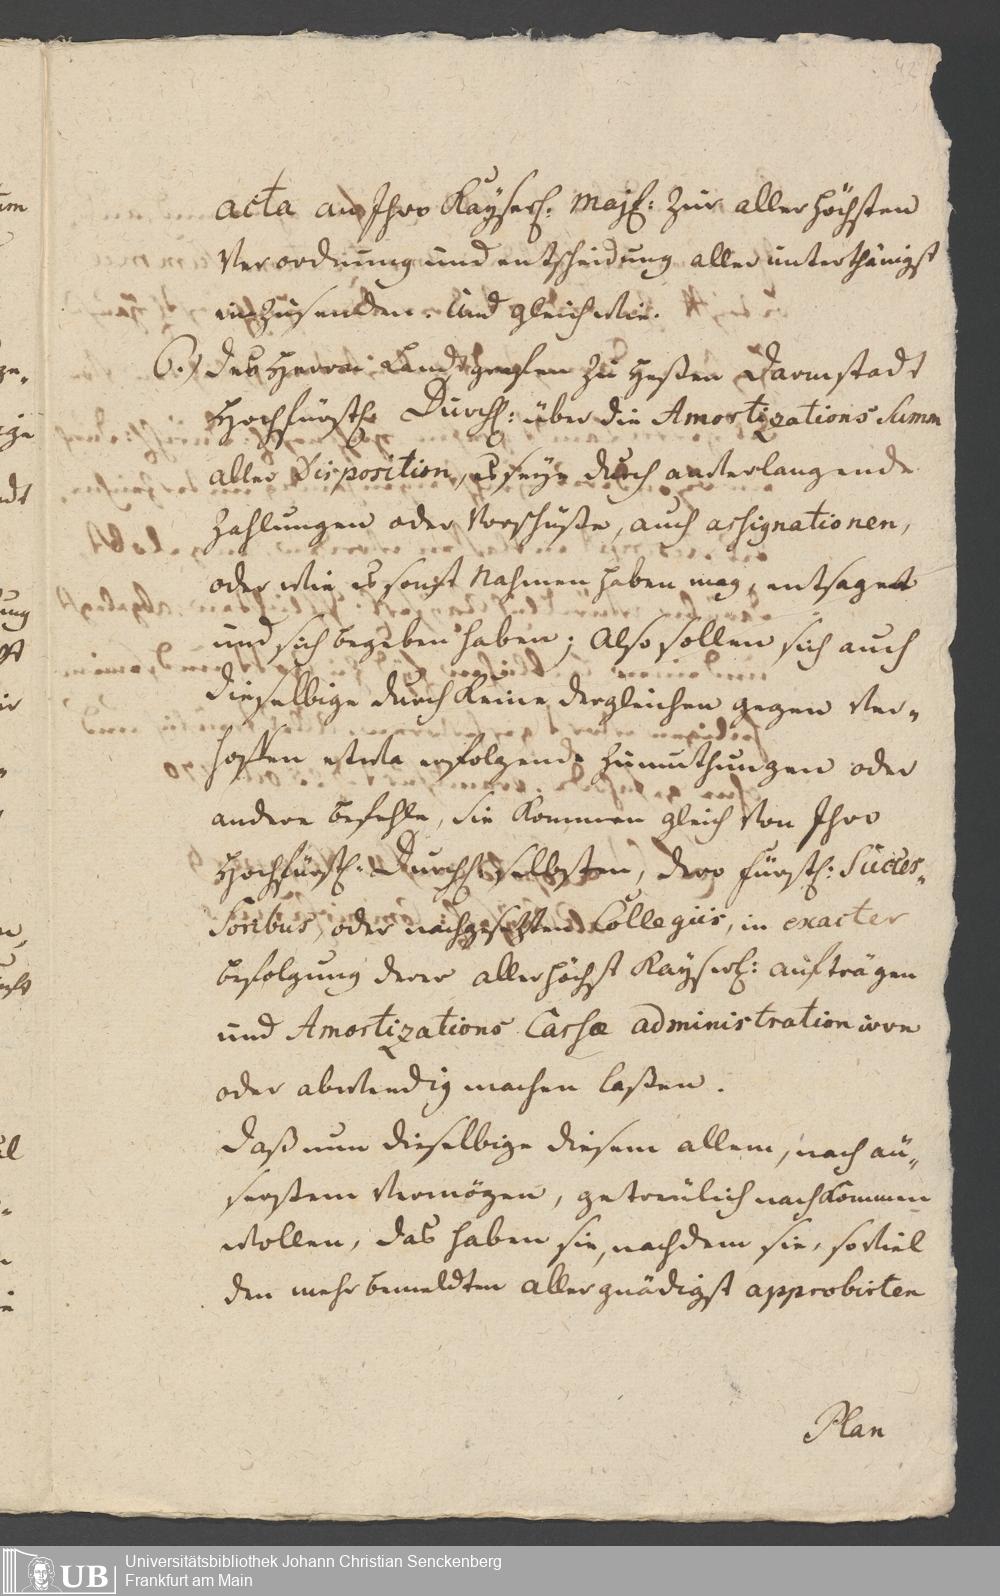 42
acta an Ihro Kayserl: Majt: zur allerhöchsten
Verordnung und entscheidung allerunterthänigst
einzusenden. Und gleichwie.
6.) Des Herrn Landtgrafen zu Heßen Darmstadt
Hochfürstl: Durchl: über die Amortizations Summ
aller Disposition, es seye durch anverlangende
Zahlungen oder Vorschüße, auch assignationen,
oder wie es sonst Nahmen haben mag, entsaget
und sich begeben haben; Also sollen sich auch
dieselbige durch keine dergleichen gegen Ver-
hoffen etwa erfolgende Zumuthungen oder
andere befehle, sie kommen gleich von Ihro
Hochfürstl: Durchl: selbsten, dero fürstl: Succes-
soribus, oder nachgesetzten Collegiis, in exacter
befolgung derer allerhöchst Kayserl: aufträgen
und Amortizations Cassæ administration irre
oder abwendig machen laßen.
Daß nun dieselbige diesem allem, nach äu-
serstem Vermögen, getreulich nachkommen
wollen, das haben sie, nachdem sie, soviel
den mehrbemeldten allergnädigst approbirten
Plan
UB
Universitätsbibliothek Johann Christian Senckenberg
Frankfurt am Main